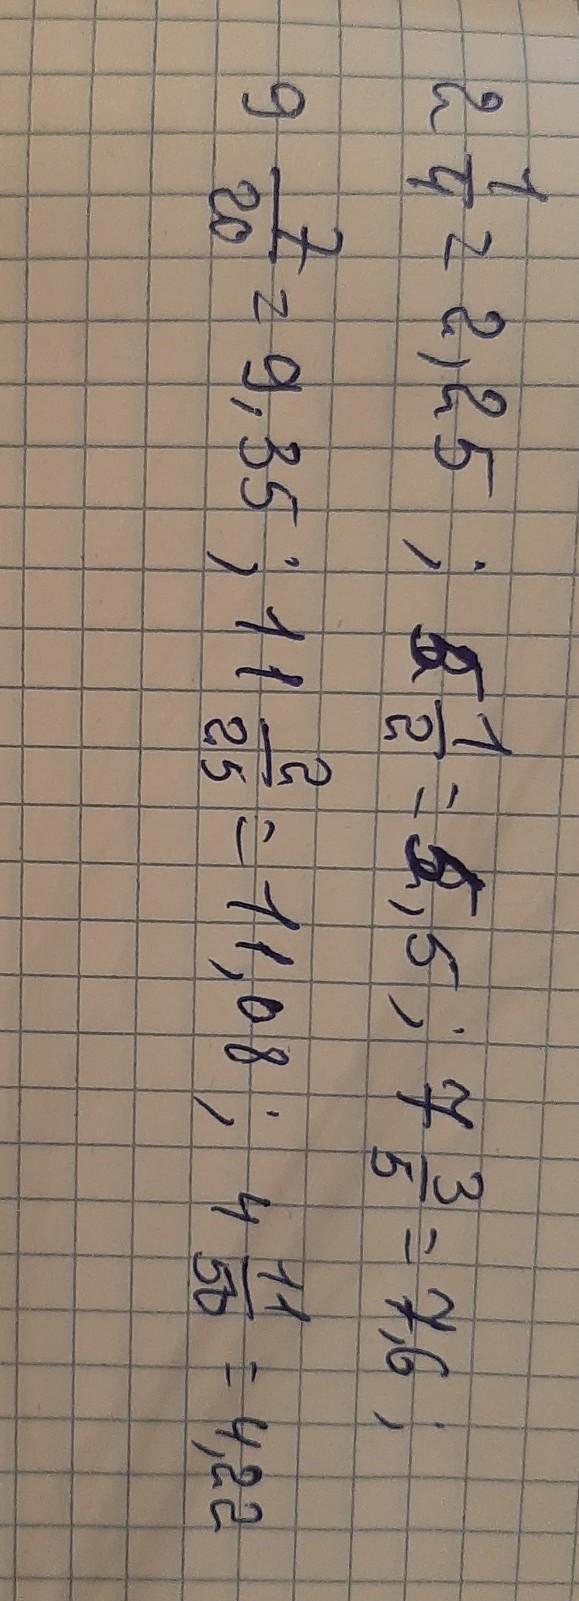 2 1/4 = 2,25 ; 5 1/2 = 5,5 ; 7 3/5 = 7,6 ;
9 7/20 = 9,35 ; 11 2/25 = 11,08 ; 4 11/50 = 4,22